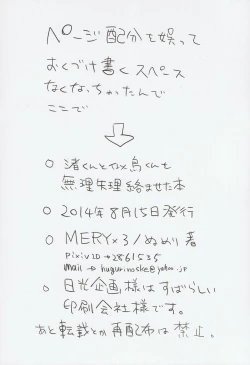 ページ配分を誤って
おくづけ書くスペース
なくなっちゃたんで
ここで
○ 渚くんとカルマ鳥くんを
無理矢理絡ませた本
○ 2014年8月15日発行
○ MERY×3/ぬめり著
pixiv ID → 2861535
mail → hugurinoske@yahoo.jp
○ 日光企画様はすばらしい
印刷会社様です。
あと転載とか再配布は禁止。